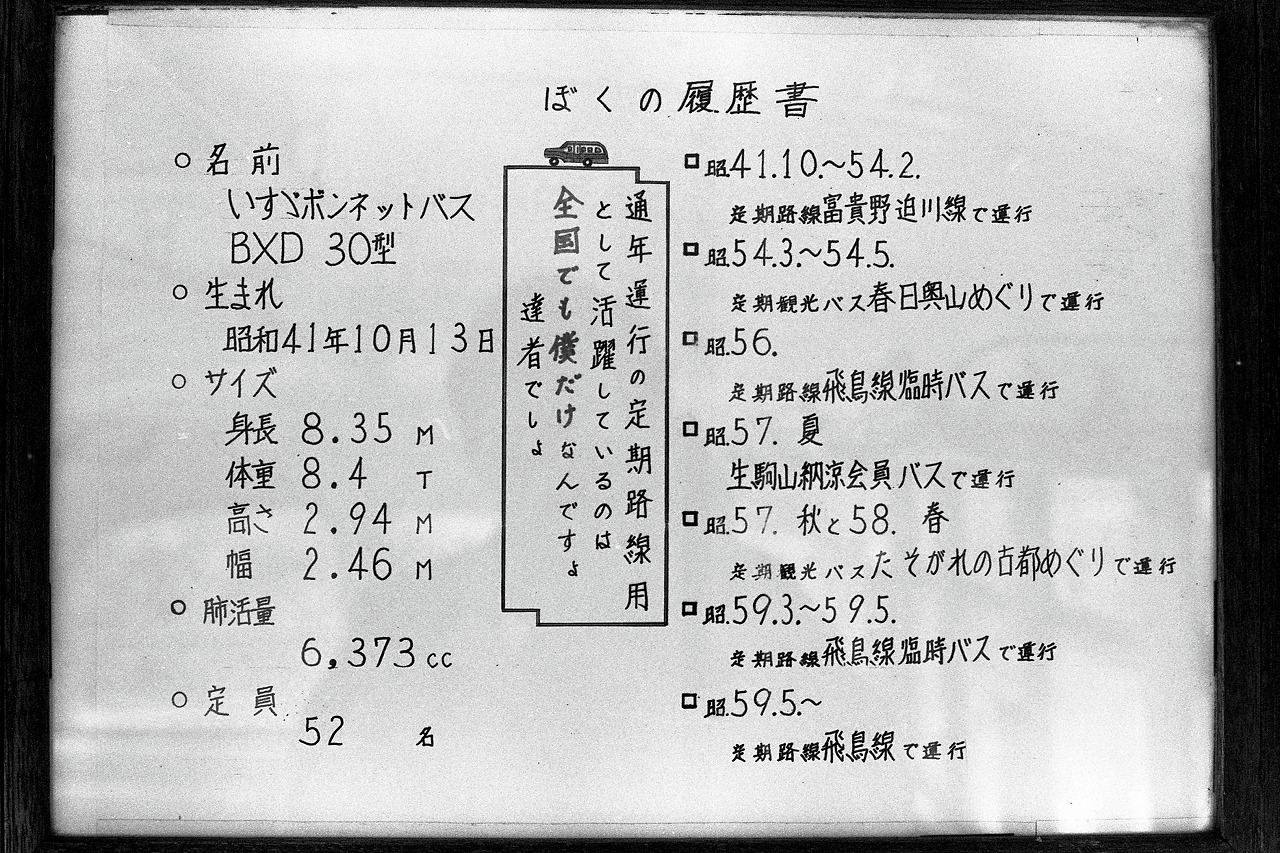 ぼくの履歴書
○ 名前
いすゞボンネットバス
BXD 30型
○ 生まれ
昭和41年10月13日
○ サイズ
身長 8.35 M
体重 8.4 T
高さ 2.94 M
幅 2.46 M
○ 肺活量
6,373cc
○ 定員
52 名
通年運行の定期路線用
として活躍しているのは
全国でも僕だけなんですょ
達者でしょ
□ 昭41.10.〜54.2.
定期路線富貴野迫川線で運行
□ 昭54.3.〜54.5.
定期観光バス春日奥山めぐりで運行
□ 昭56.
定期路線飛鳥線臨時バスで運行
□ 昭57. 夏
生駒山納涼会員バスで運行
□ 昭57. 秋と58. 春
定期観光バスたそがれの古都めぐりで運行
□ 昭59.3.〜59.5.
定期路線飛鳥線臨時バスで運行
□ 昭59.5.〜
定期路線飛鳥線で運行